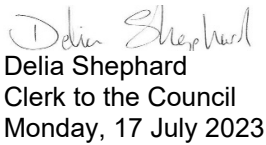 Delia Shephard
Delia Shephard
Clerk to the Council
Monday, 17 July 2023